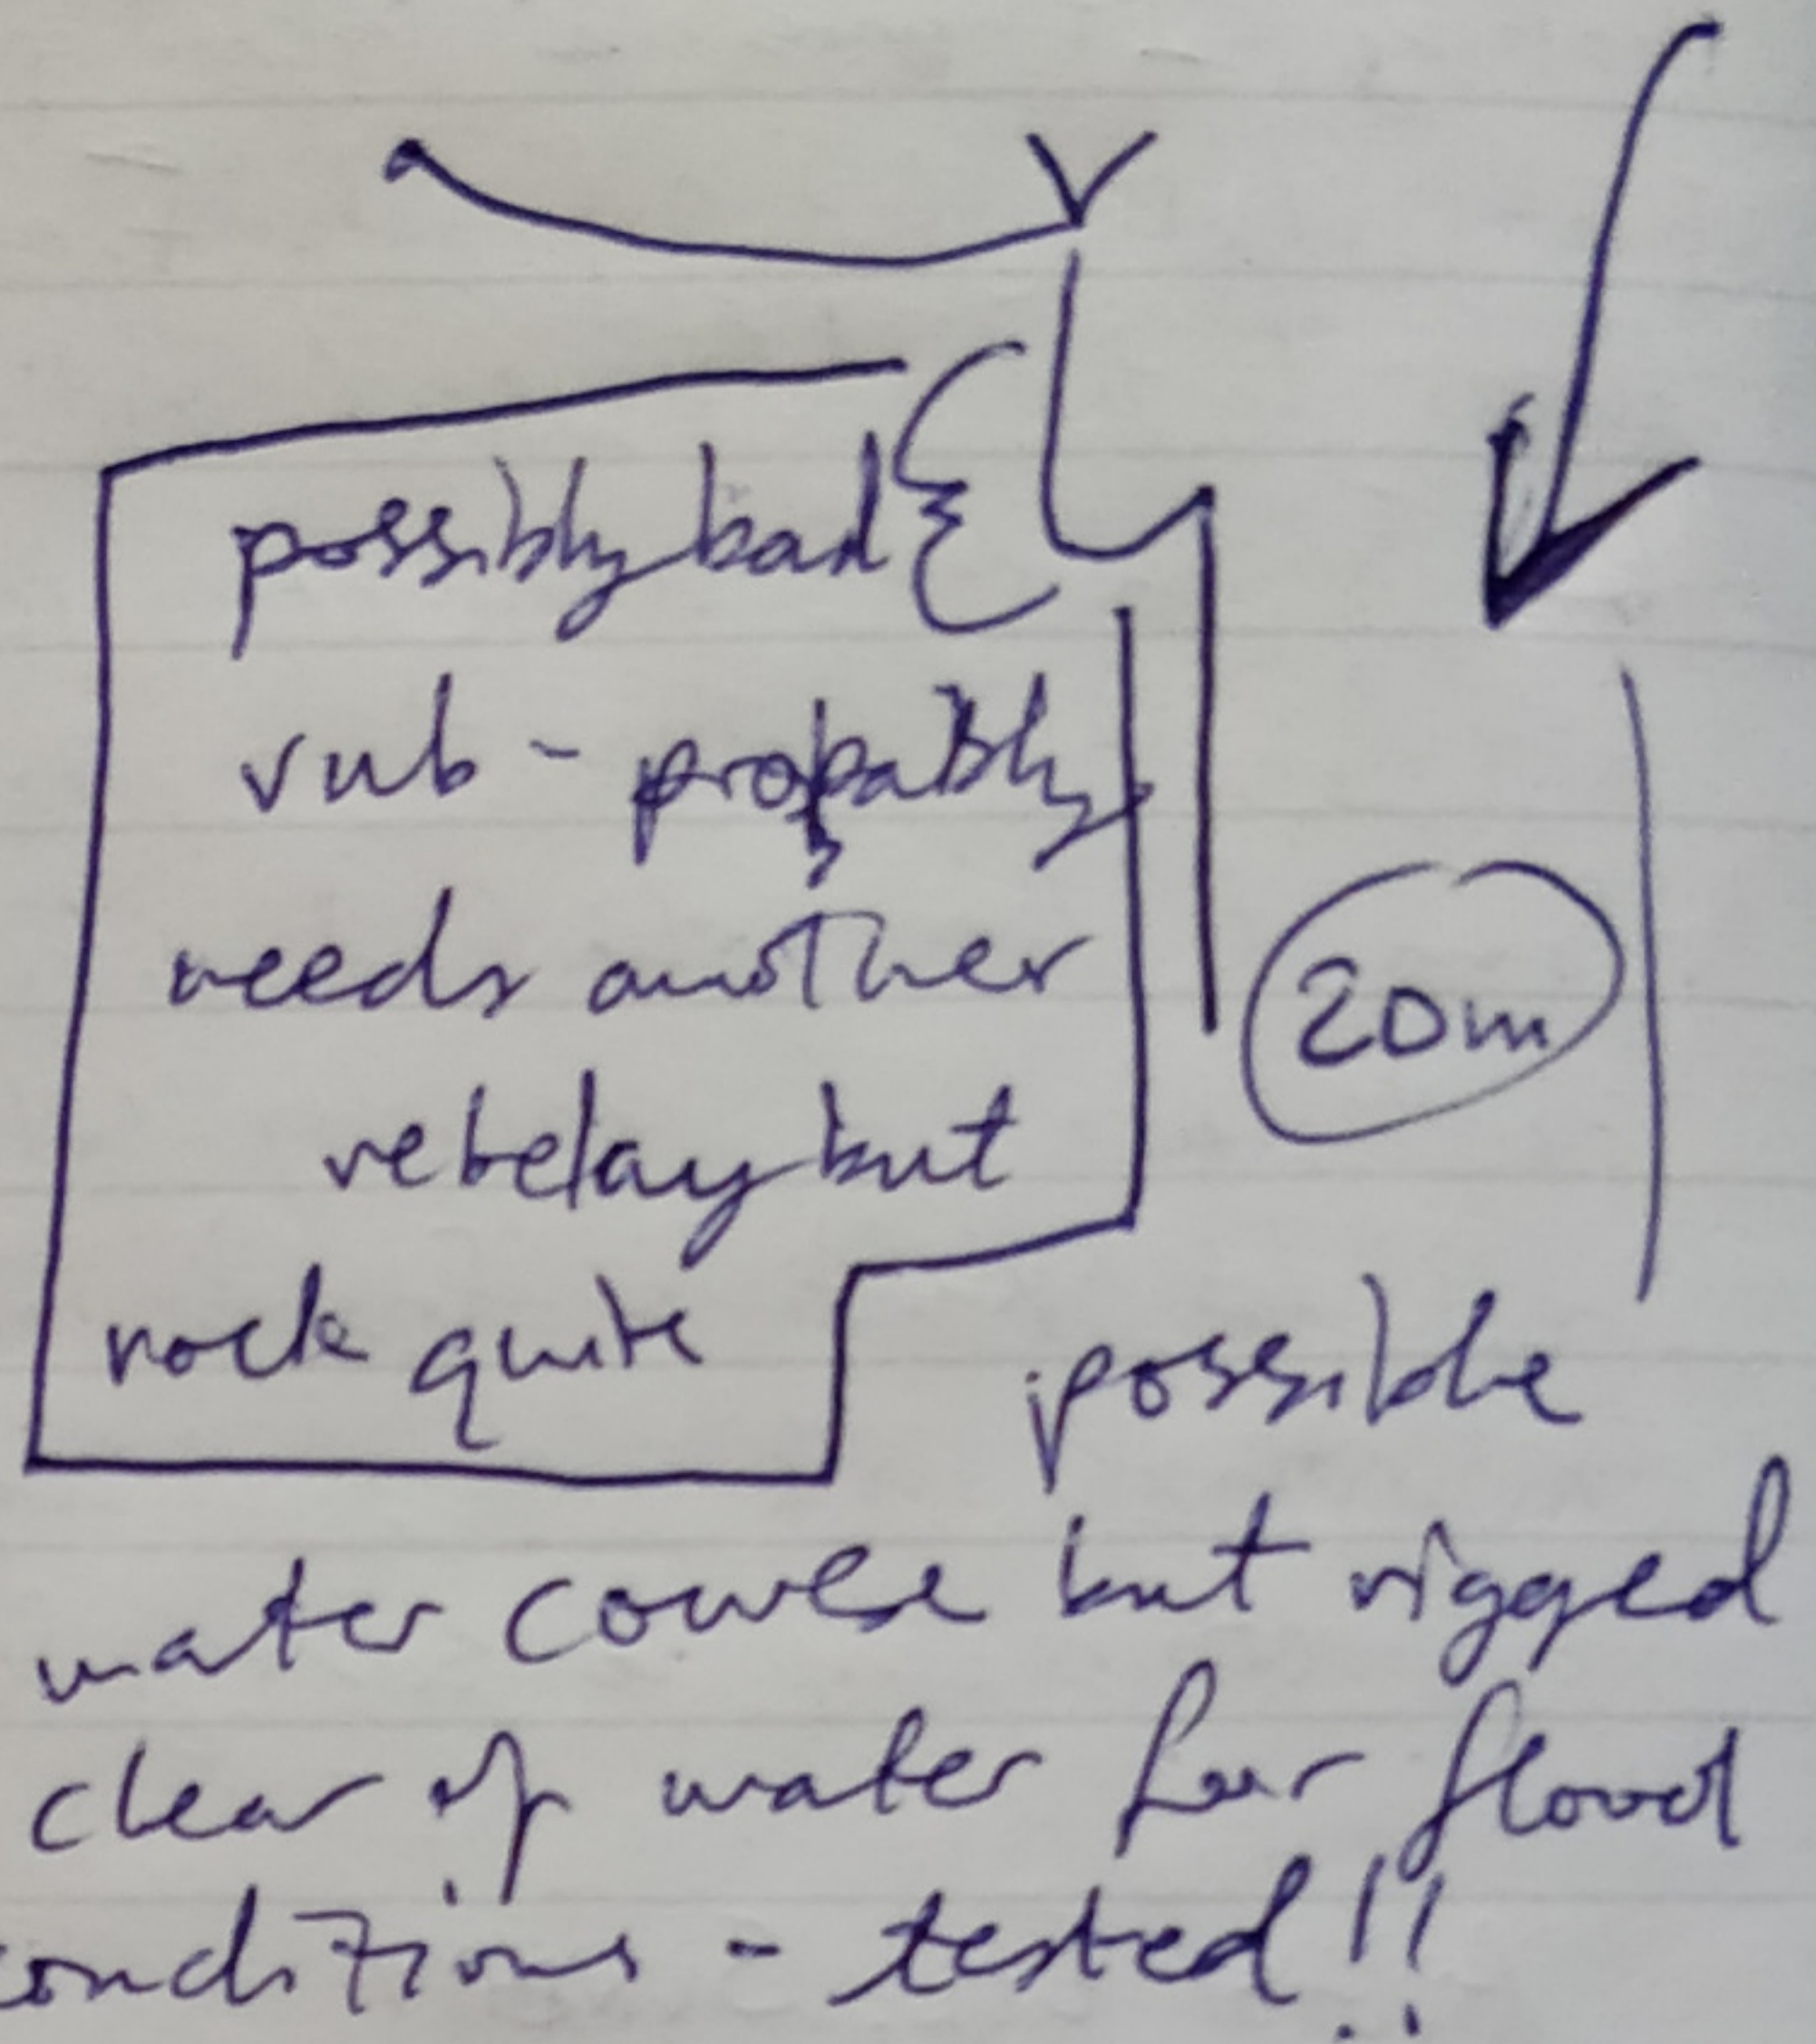 possibly bad
rub - probably
needs another
rebelay but
rock quite
20m
possible
water course but rigged
clear of water for flood
conditions - tested!!